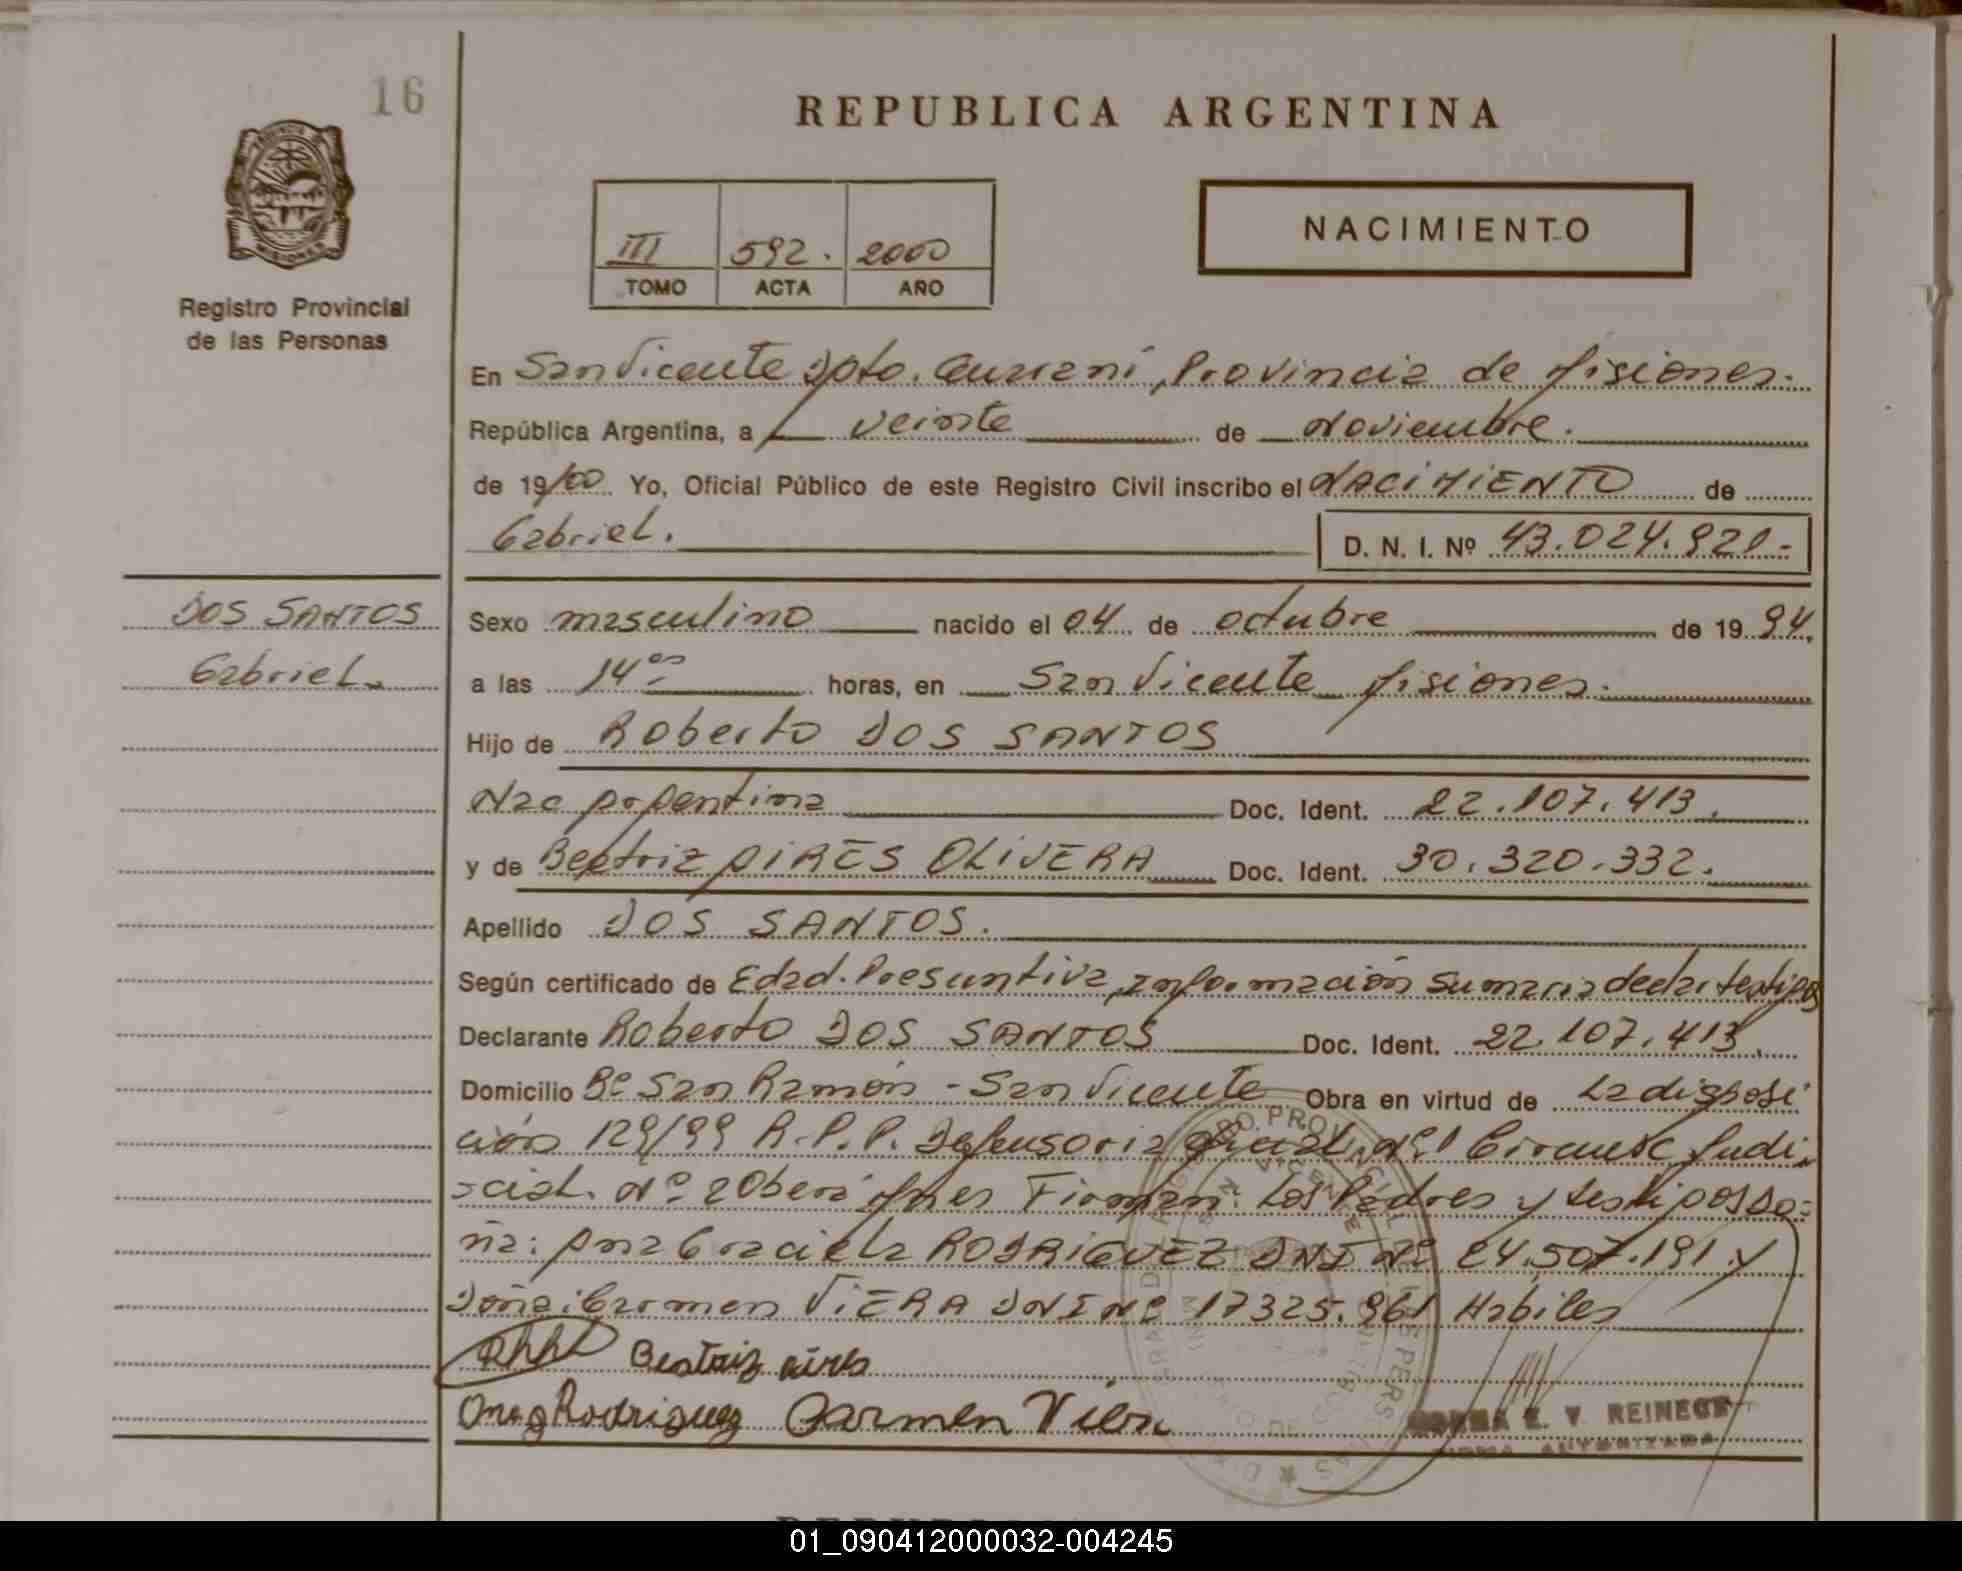 16
REPUBLICA ARGENTINA
III 592. 2000
TOMO ACTA AÑO
NACIMIENTO
Registro Provincial
de las Personas
En San Vicente Dpto. Guarani, Provincia de Misiones.
República Argentina, a veinte de Noviembre.
de 19/00 Yo, Oficial Público de este Registro Civil inscribo el NACIMIENTO de
Gabriel. D. N. I. Nº 43.024.921.-
DOS SANTOS
Gabriel.
Sexo masculino nacido el 04 de octubre de 1994.
a las 14 horas, en San Vicente Misiones.
Hijo de Roberto DOS SANTOS
Nac Argentina Doc. Ident. 22.107.413.
y de Beatriz PIRES OLIVERA Doc. Ident. 30.320.332.
Apellido DOS SANTOS.
Según certificado de Edad. Presuntiva, Información Sumaria testigos
Declarante Roberto DOS SANTOS Doc. Ident. 22.107.413.
Domicilio Bº San Ramón - San Vicente Obra en virtud de La disposi
ción 129/99 R.P.P. Defensoria Nº1 Circunsc Judi
cial. Nº 2 Oberá Mnes Firman: Los Padres y testigos Do=
ña: Ana Graciela RODRIGUEZ DNI Nº 24.507.191 y
Doña: Carmen VIERA DNI Nº 17325.961 Habiles
Beatriz aires
Ana g Rodriguez Carmen Viera
E. V. REINECK
FIRMA AUTORIZADA
01_090412000032-004245